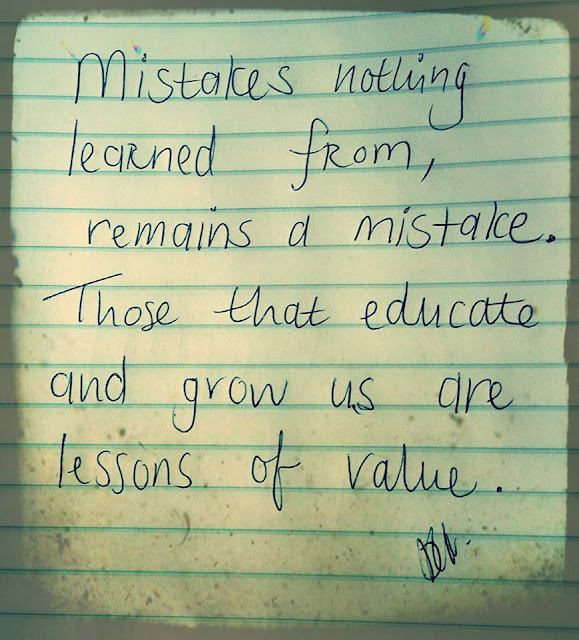 Mistakes nothing
learned from,
remains a mistake.
Those that educate
and grow us are
lessons of value.